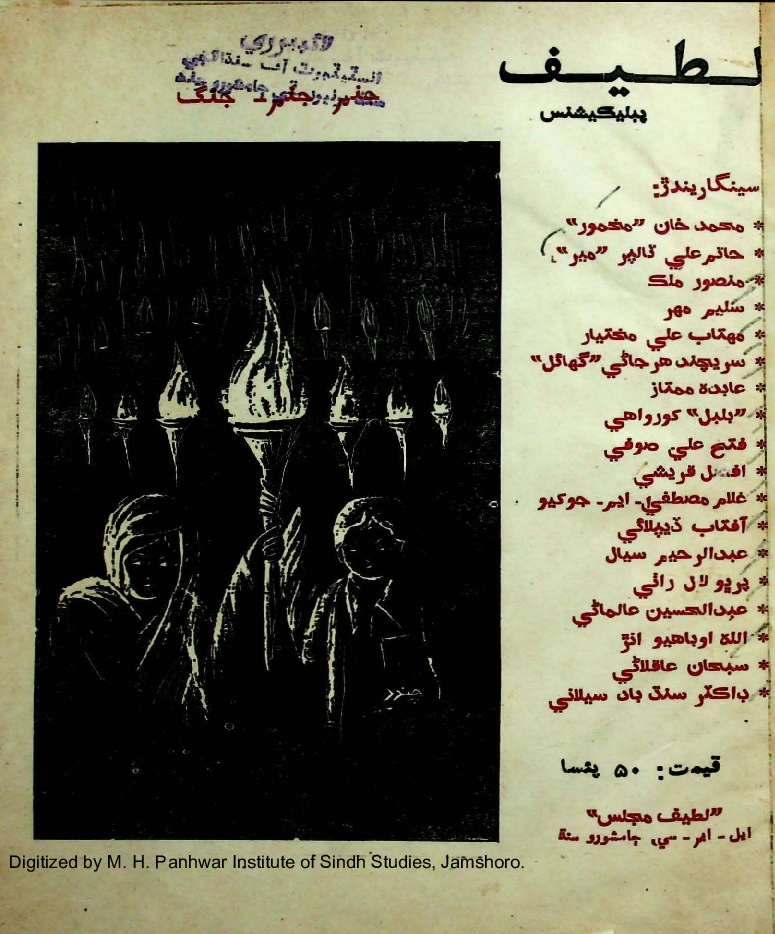 لطيف
پبليڪيشنس
لائبريري
انسٽيٽيوٽ آف سنڌالاجي
سنڌ يونيورسٽي ڄامشورو سنڌ
جنم جنم جنگ
سينگاريندڙ:
* محمد خان ”مخمور“
* حاتم علي ٽالپر ”مير“
* منصور ملڪ
* سليم مهر
* مهتاب علي مختيار
* سريچند هرجاڻي ”گهائل“
* عابده ممتاز
* ”بلبل“ کورواهي
* فتح علي صوفي
* افضل قريشي
* غلام مصطفيٰ۔ ايم۔ جوکيو
* آفتاب ڏيپلائي
* عبدالرحيم سيال
* پرڀو لال راٺي
* عبدالحسين عالماڻي
* الله اوڀاهيو انڙ
* سبحان عاقلاڻي
* ڊاڪٽر سنڌ باد سيلاني
قيمت: ۵۰ پئسا
”لطيف مجلس“
ايل - ايم - سي، ڄامشورو سنڌ
Digitized by M. H. Panhwar Institute of Sindh Studies, Jamshoro.